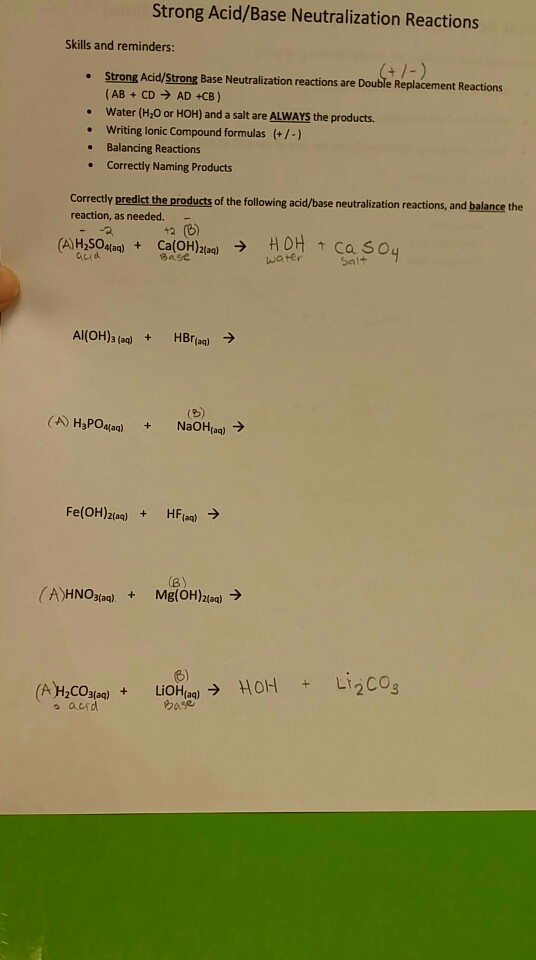 Strong Acid/Base Neutralization Reactions
Skills and reminders:
(+/-)
• Strong Acid/Strong Base Neutralization reactions are Double Replacement Reactions
(AB + CD → AD +CB)
• Water (H₂O or HOH) and a salt are ALWAYS the products.
• Writing Ionic Compound formulas (+/-)
• Balancing Reactions
• Correctly Naming Products
Correctly predict the products of the following acid/base neutralization reactions, and balance the
reaction, as needed.
- -2 +2 (B) -
(A) H₂SO₄(aq) + Ca(OH)₂(aq) → HOH + CaSO₄
acid Base water salt
Al(OH)₃ (aq) + HBr(aq) →
(B)
(A) H₃PO₄(aq) + NaOH(aq) →
Fe(OH)₂(aq) + HF(aq) →
(B)
(A) HNO₃(aq) + Mg(OH)₂(aq) →
(B)
(A) H₂CO₃(aq) + LiOH(aq) → HOH + Li₂CO₃
acid Base